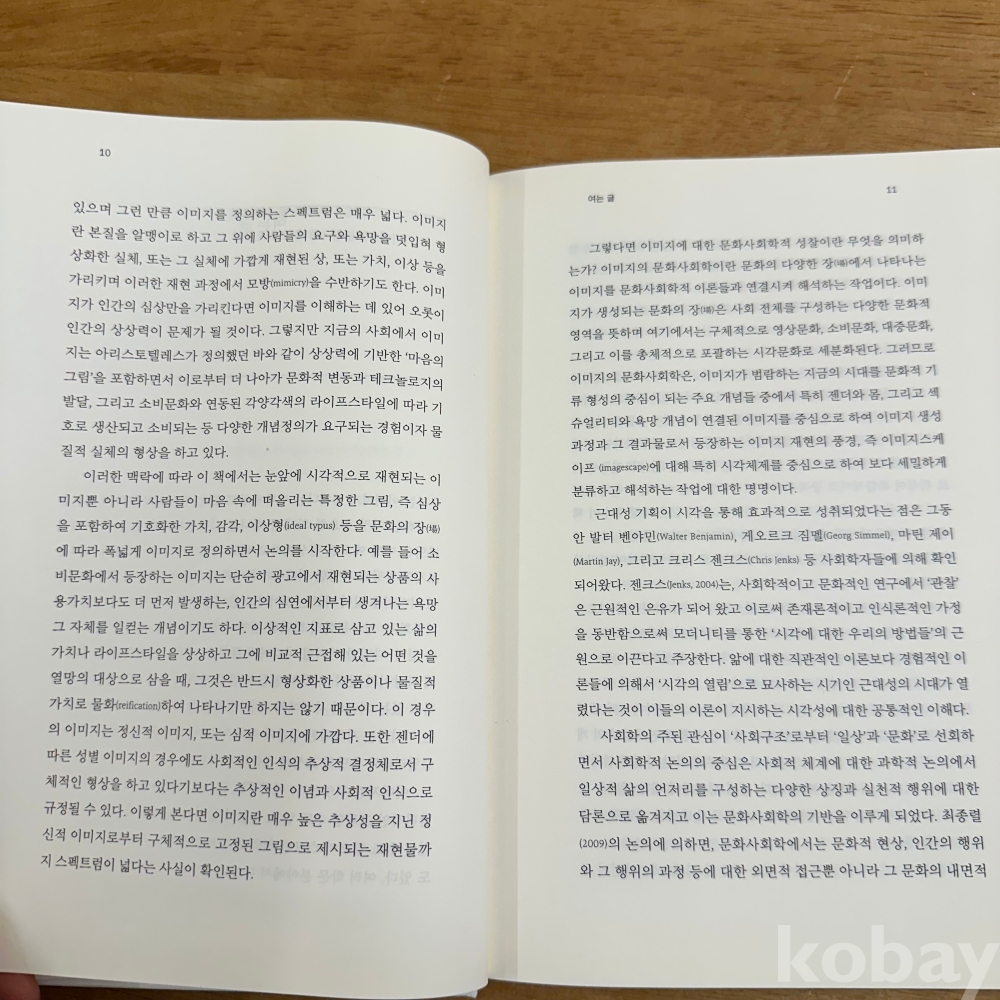 10
있으며 그런 만큼 이미지를 정의하는 스펙트럼은 매우 넓다. 이미지
란 본질을 알맹이로 하고 그 위에 사람들의 요구와 욕망을 덧입혀 형
상화한 실체, 또는 그 실체에 가깝게 재현된 상, 또는 가치, 이상 등을
가리키며 이러한 재현 과정에서 모방(mimicry)을 수반하기도 한다. 이미
지가 인간의 심상만을 가리킨다면 이미지를 이해하는 데 있어 오롯이
인간의 상상력이 문제가 될 것이다. 그렇지만 지금의 사회에서 이미
지는 아리스토텔레스가 정의했던 바와 같이 상상력에 기반한 ‘마음의
그림’을 포함하면서 이로부터 더 나아가 문화적 변동과 테크놀로지의
발달, 그리고 소비문화와 연동된 각양각색의 라이프스타일에 따라 기
호로 생산되고 소비되는 등 다양한 개념정의가 요구되는 경험이자 물
질적 실체의 형상을 하고 있다.
이러한 맥락에 따라 이 책에서는 눈앞에 시각적으로 재현되는 이
미지뿐 아니라 사람들이 마음 속에 떠올리는 특정한 그림, 즉 심상
을 포함하여 기호화한 가치, 감각, 이상형(ideal typus) 등을 문화의 장(場)
에 따라 폭넓게 이미지로 정의하면서 논의를 시작한다. 예를 들어 소
비문화에서 등장하는 이미지는 단순히 광고에서 재현되는 상품의 사
용가치보다도 더 먼저 발생하는, 인간의 심연에서부터 생겨나는 욕망
그 자체를 일컫는 개념이기도 하다. 이상적인 지표로 삼고 있는 삶의
가치나 라이프스타일을 상상하고 그에 비교적 근접해 있는 어떤 것을
열망의 대상으로 삼을 때, 그것은 반드시 형상화한 상품이나 물질적
가치로 물화(reification)하여 나타나기만 하지는 않기 때문이다. 이 경우
의 이미지는 정신적 이미지, 또는 심적 이미지에 가깝다. 또한 젠더에
따른 성별 이미지의 경우에도 사회적인 인식의 추상적 결정체로서 구
체적인 형상을 하고 있다기보다는 추상적인 이념과 사회적 인식으로
규정될 수 있다. 이렇게 본다면 이미지란 매우 높은 추상성을 지닌 정
신적 이미지로부터 구체적으로 고정된 그림으로 제시되는 재현물까
지 스펙트럼이 넓다는 사실이 확인된다.
여는 글
11
그렇다면 이미지에 대한 문화사회학적 성찰이란 무엇을 의미하
는가? 이미지의 문화사회학이란 문화의 다양한 장(場)에서 나타나는
이미지를 문화사회학적 이론들과 연결시켜 해석하는 작업이다. 이미
지가 생성되는 문화의 장(場)은 사회 전체를 구성하는 다양한 문화적
영역을 뜻하며 여기에서는 구체적으로 영상문화, 소비문화, 대중문화,
그리고 이를 총체적으로 포괄하는 시각문화로 세분화된다. 그러므로
이미지의 문화사회학은, 이미지가 범람하는 지금의 시대를 문화적 기
류 형성의 중심이 되는 주요 개념들 중에서 특히 젠더와 몸, 그리고 섹
슈얼리티와 욕망 개념이 연결된 이미지를 중심으로 하여 이미지 생성
과정과 그 결과물로서 등장하는 이미지 재현의 풍경, 즉 이미지스케
이프 (imagescape)에 대해 특히 시각체제를 중심으로 하여 보다 세밀하게
분류하고 해석하는 작업에 대한 명명이다.
근대성 기획이 시각을 통해 효과적으로 성취되었다는 점은 그동
안 발터 벤야민(Walter Benjamin), 게오르크 짐멜(Georg Simmel), 마틴 제이
(Martin Jay), 그리고 크리스 젠크스(Chris Jenks) 등 사회학자들에 의해 확인
되어왔다. 젠크스(Jenks, 2004)는, 사회학적이고 문화적인 연구에서 ‘관찰’
은 근원적인 은유가 되어 왔고 이로써 존재론적이고 인식론적인 가정
을 동반함으로써 모더니티를 통한 ‘시각에 대한 우리의 방법들’의 근
원으로 이끈다고 주장한다. 앎에 대한 직관적인 이론보다 경험적인 이
론들에 의해서 ‘시각의 열림’으로 묘사하는 시기인 근대성의 시대가 열
렸다는 것이 이들의 이론이 지시하는 시각성에 대한 공통적인 이해다.
사회학의 주된 관심이 ‘사회구조’로부터 ‘일상’과 ‘문화’로 선회하
면서 사회학적 논의의 중심은 사회적 체계에 대한 과학적 논의에서
일상적 삶의 언저리를 구성하는 다양한 상징과 실천적 행위에 대한
담론으로 옮겨지고 이는 문화사회학의 기반을 이루게 되었다. 최종렬
(2009)의 논의에 의하면, 문화사회학에서는 문화적 현상, 인간의 행위
와 그 행위의 과정 등에 대한 외면적 접근뿐 아니라 그 문화의 내면적
kobay